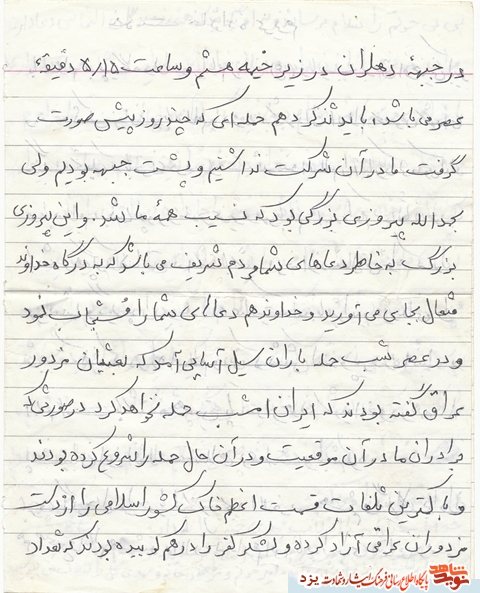 در جبههٔ دهلران در زیر خیمه هستم و ساعت ۵/۱۵ دقیقهٔ
عصر می باشد، باید تذکر دهم حمله ای که چند روز پیش صورت
گرفت ما در آن شرکت نداشتیم و پشت جبهه بودیم ولی
بحمدالله پیروزی بزرگی بود که نصیب همهٔ ما شد. و این پیروزی
بزرگ به خاطر دعاهای شما مردم شریف می باشد که به درگاه خداوند
متعال بجای می آورید و خداوند هم دعاهای شما را مُستجاب نمود
و در عصر شب حمله باران سیل آسایی آمد که بعثیان مزدور
عراق گفته بودند که ایران امشب حمله نخواهد کرد در صورتی که
برادران ما در آن موقعیت و در آن حال حمله را شروع کرده بودند
و با کمترین تلفات قسمت اعظم خاک کشور اسلامی را از دست
مزدوران عراقی آزاد کرده و لشکر کفر را درهم کوبیده بودند که تعداد
نوید شاهد
پایگاه اطلاع رسانی فرهنگ ایثار و شهادت یزد